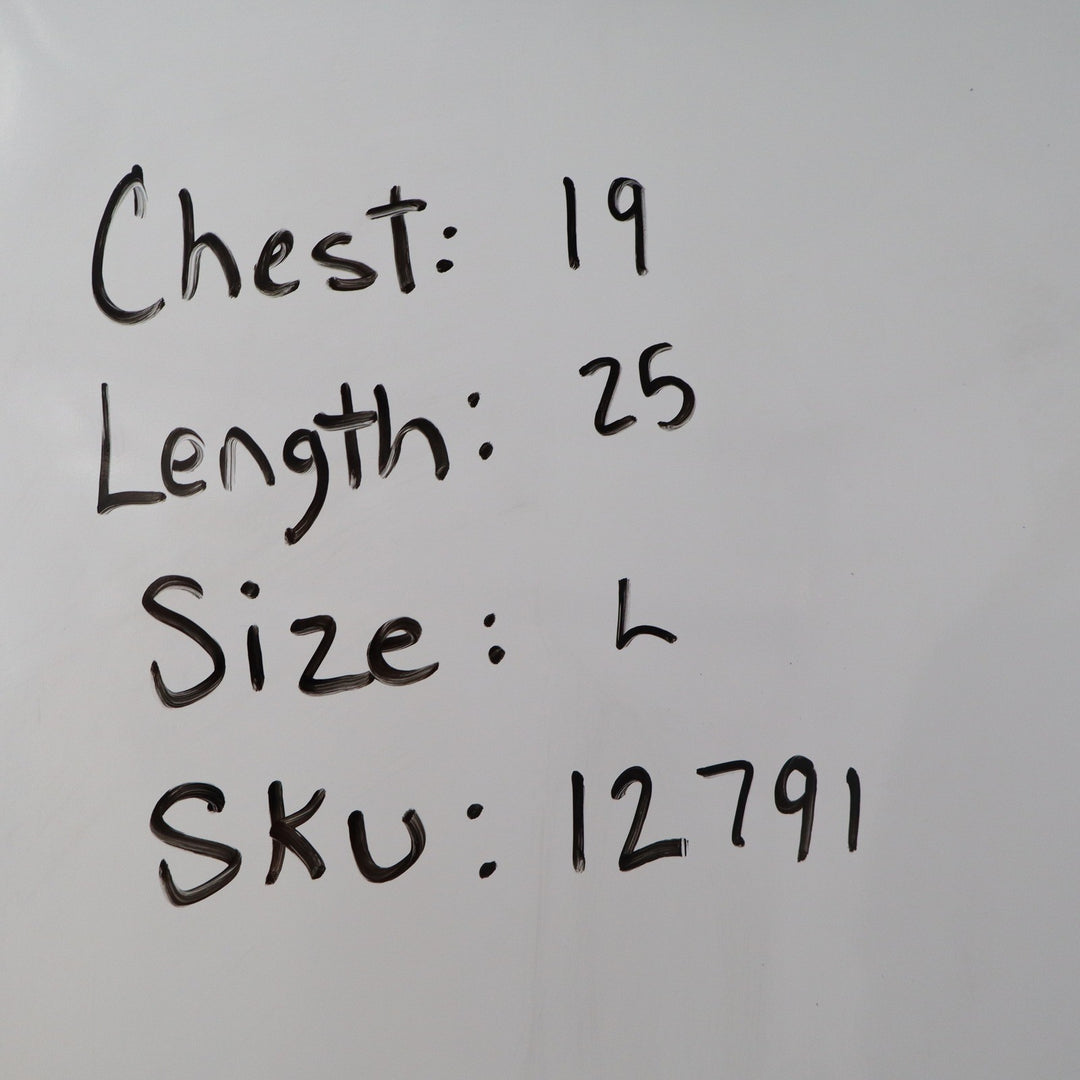 Chest: 19
Length: 25
Size: L
SKU: 12791